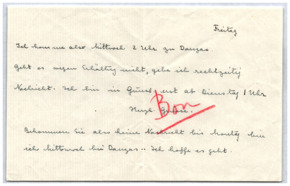 Freitag
Ich komme also Mittwoch 2 Uhr zu Danzas
Geht es wegen nicht, gebe ich rechtzeitig
Nachricht. Ich bin in erst ab Dienstag 1 Uhr
Herzl.
Bon
Bekommen Sie also keine Nachricht bis Montag bin
ich Mittwoch bei Danzas. Ich hoffe es geht.